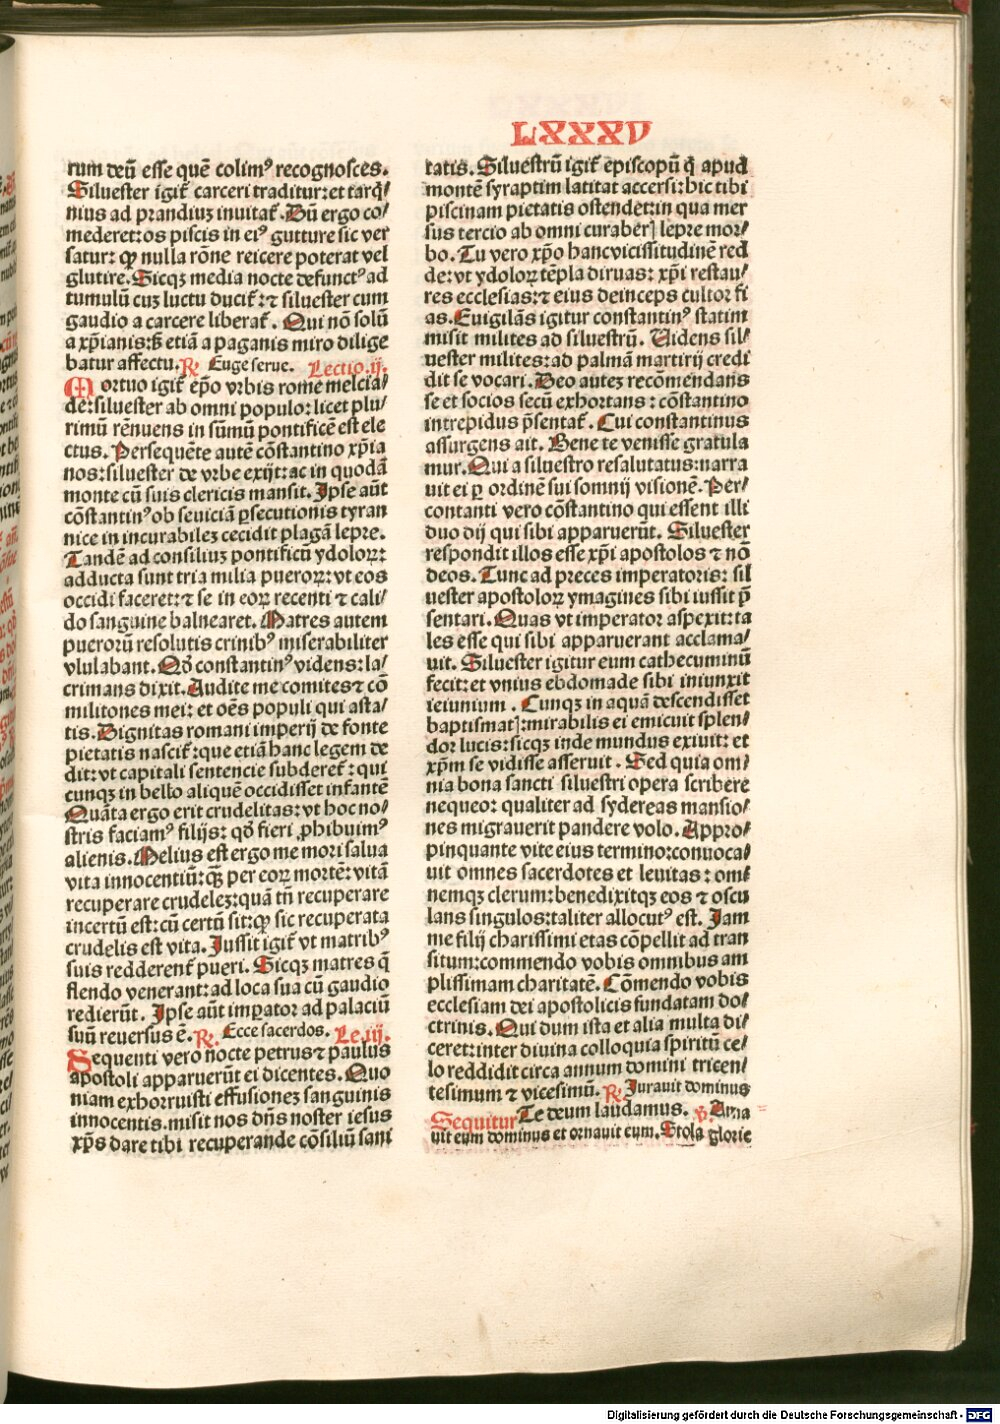 LXXXV
rum deū esse quē colimꝰ recognosces.
Siluester igit̄ carceri traditur: et tarq̄/
nius ad prandiuꝫ inuitat̄. Dū ergo co/
mederet: os piscis in eiꝰ gutture sic ver
satur: ꝙ nulla rōne reicere poterat vel
glutire. Sicqꝫ media nocte defunctꝰ ad
tumulū cuꝫ luctu ducit̄: ⁊ siluester cum
gaudio a carcere liberat̄. Qui nō solū
a xp̄ianis: ß etiā a paganis miro dilige
batur affectu. ℟. Euge serue. Lectio.ij.
Mortuo igit̄ ep̄o vrbis rome melcia/
de: siluester ab omni populo: licet plu/
rimū rēnuens in sūmū pontificē est ele
ctus. Persequēte autē cōstantino xp̄ia
nos: siluester de vrbe exijt: ac in quodā
monte cū suis clericis mansit. Ipse aūt
cōstantinꝰ ob seuiciā ꝑsecutionis tyran
nice in incurabileꝫ cecidit plagā lepre.
Tandē ad consiliuꝫ pontificū ydoloꝝ:
adducta sunt tria milia pueroꝝ: vt eos
occidi faceret: ⁊ se in eoꝝ recenti ⁊ cali/
do sanguine balnearet. Matres autem
puerorū resolutis crinibꝰ miserabiliter
vlulabant. Qd̄ constantinꝰ videns: la/
crimans dixit. Audite me comites ⁊ cō
militones mei: et oēs populi qui asta/
tis. Dignitas romani imperij de fonte
pietatis nascit̄: que etiā hanc legem de
dit: vt capitali sentencie subderet̄: qui
cunqꝫ in bello aliquē occidisset infantē
Quāta ergo erit crudelitas: vt hoc no/
stris faciamꝰ filijs: qd̄ fieri ꝓhibuimꝰ
alienis. Melius est ergo me mori salua
vita innocentiū: qꝫ̄ per eoꝝ mortē: vitā
recuperare crudeleꝫ: quā tn̄ recuperare
incertū est: cū certū sit: ꝙ sic recuperata
crudelis est vita. Jussit igit̄ vt matribꝰ
suis redderent̄ pueri. Sicqꝫ matres q̄
flendo venerant: ad loca sua cū gaudio
redierūt. Ipse aūt imꝑator ad palaciū
suū reuersus ē. ℟. Ecce sacerdos. Le.iij.
Sequenti vero nocte petrus ⁊ paulus
apostoli apparuerūt ei dicentes. Quo
niam exhorruisti effusioneꝫ sanguinis
innocentis. misit nos dn̄s noster iesus
xp̄s dare tibi recuperande cōsiliū sani
tatis. Siluestrū igit̄ episcopū q̄ apud
montē syraptim latitat accersi: hic tibi
piscinam pietatis ostendet: in qua mer
sus tercio ab omni curaberꝭ lepre mor/
bo. Tu vero xp̄o hanc vicissitudinē red
de: vt ydoloꝝ tēpla diruas: xp̄i restau/
res ecclesias: ⁊ eius deinceps cultor fi
as. Euigilās igitur constantinꝰ statim
misit milites ad siluestrū. Uidens sil/
uester milites: ad palmā martirij credi
dit se vocari. Deo auteꝫ recōmendans
se et socios secū exhortans: cōstantino
intrepidus p̄sentat̄. Cui constantinus
assurgens ait. Bene te venisse gratula
mur. Qui a siluestro resalutatus: narra
uit ei ꝑ ordinē sui somnij visionē. Per/
contanti vero cōstantino qui essent illi
duo dij qui sibi apparuerūt. Siluester
respondit illos esse xp̄i apostolos ⁊ nō
deos. Tunc ad preces imperatoris: sil
uester apostoloꝝ ymagines sibi iussit p̄
sentari. Quas vt imperator aspexit: ta
les esse qui sibi apparuerant acclama/
uit. Siluester igitur eum cathecuminū
fecit: et vnius ebdomade sibi iniunxit
ieiunium. Cunqꝫ in aquā descendisset
baptismatꝭ: mirabilis ei emicuit splen/
dor lucis: sicqꝫ inde mundus exiuit: et
xp̄m se vidisse asseruit. Sed quia om/
nia bona sancti siluestri opera scribere
nequeo: qualiter ad sydereas mansio/
nes migrauerit pandere volo. Appro/
pinquante vite eius termino: conuoca/
uit omnes sacerdotes et leuitas: om/
nemqꝫ clerum: benedixitqꝫ eos ⁊ oscu
lans singulos: taliter allocutꝰ est. Jam
me filij charissimi etas cōpellit ad tran
situm: commendo vobis omnibus am
plissimam charitatē. Cōmendo vobis
ecclesiam dei apostolicis fundatam do/
ctrinis. Qui dum ista et alia multa di/
ceret: inter diuina colloquia spiritū ce/
lo reddidit circa annum domini tricen/
tesimum ⁊ vicesimū. ℟. Jurauit dominus
Sequitur Te deum laudamus. ℣. Ama
uit eum dominus et ornauit eum. Stola glorie
Digitalisierung gefördert durch die Deutsche Forschungsgemeinschaft - DFG